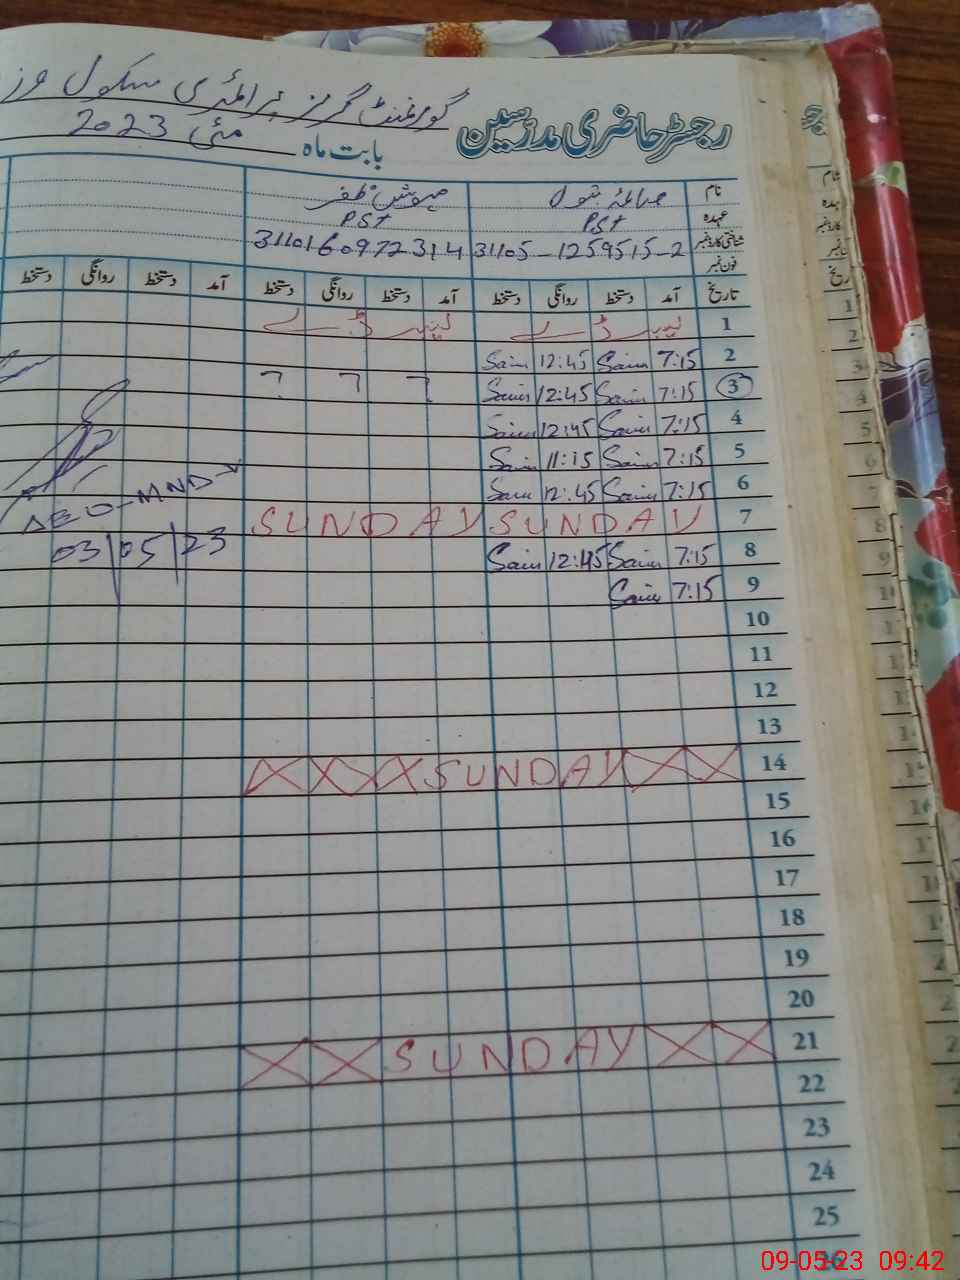 رجسٹر حاضری مدرسین گورنمنٹ گرلز پرائمری سکول
بابت ماہ مئی 2023
نام صائمہ بتول مہوش ظفر
عہدہ PST PST
شناختی کارڈ نمبر 31105-1259515-2 3110160972314
فون نمبر
تاریخ آمد دستخط روانگی دستخط آمد دستخط روانگی دستخط آمد دستخط روانگی دستخط
1 لیبر ڈے لیبر ڈے
2 7:15 Saim 12:45 Saim
3 7:15 Saim 12:45 Saim
4 7:15 Saim 12:45 Saim
5 7:15 Saim 11:15 Saim
6 7:15 Saim 12:45 Saim
AEO-MND
7 SUNDAY SUNDAY
8 7:15 Saim 12:45 Saim
03/05/23
9 7:15 Saim
10
11
12
13
14 SUNDAY
15
16
17
18
19
20
21 SUNDAY
22
23
24
25
26
09-05-23 09:42